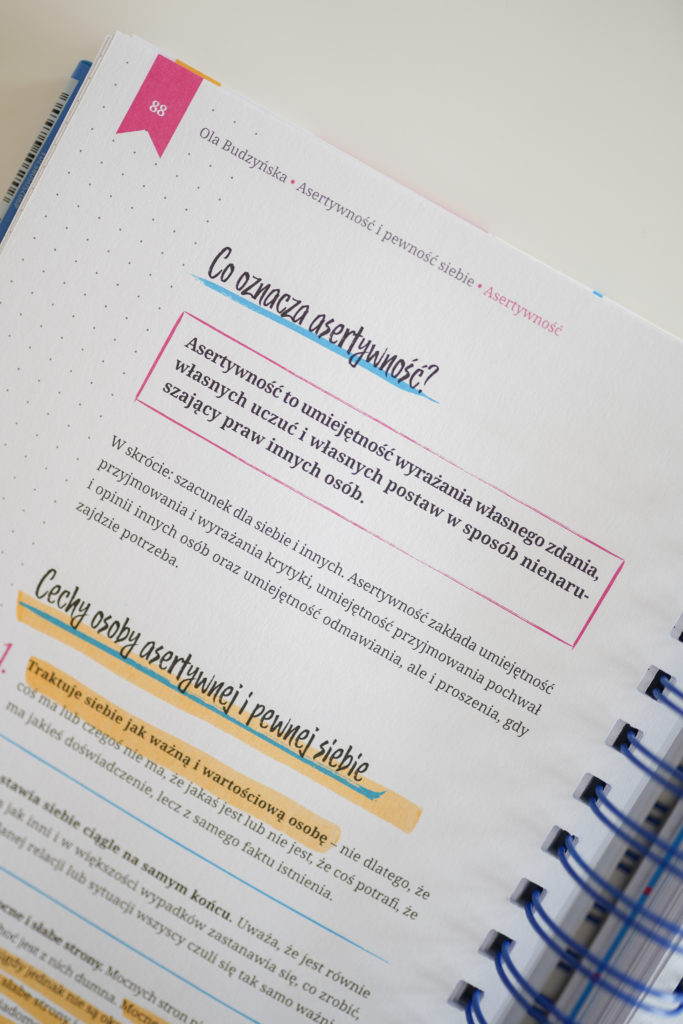 88
Ola Budzyńska • Asertywność i pewność siebie • Asertywność
Co oznacza asertywność?
Asertywność to umiejętność wyrażania własnego zdania,
własnych uczuć i własnych postaw w sposób nienaru-
szający praw innych osób.
W skrócie: szacunek dla siebie i innych. Asertywność zakłada umiejętność
przyjmowania i wyrażania krytyki, umiejętność przyjmowania pochwał
i opinii innych osób oraz umiejętność odmawiania, ale i proszenia, gdy
zajdzie potrzeba.
Cechy osoby asertywnej i pewnej siebie
1.
Traktuje siebie jak ważną i wartościową osobę – nie dlatego, że
coś ma lub czegoś nie ma, że jakaś jest lub nie jest, że coś potrafi, że
ma jakieś doświadczenie, lecz z samego faktu istnienia.
stawia siebie ciągle na samym końcu. Uważa, że jest równie
jak inni i w większości wypadków zastanawia się, co zrobić,
relacji lub sytuacji wszyscy czuli się tak samo
i słabe strony. Mocnych stron
jest z nich dumna.
jednak nie są
słabe strony